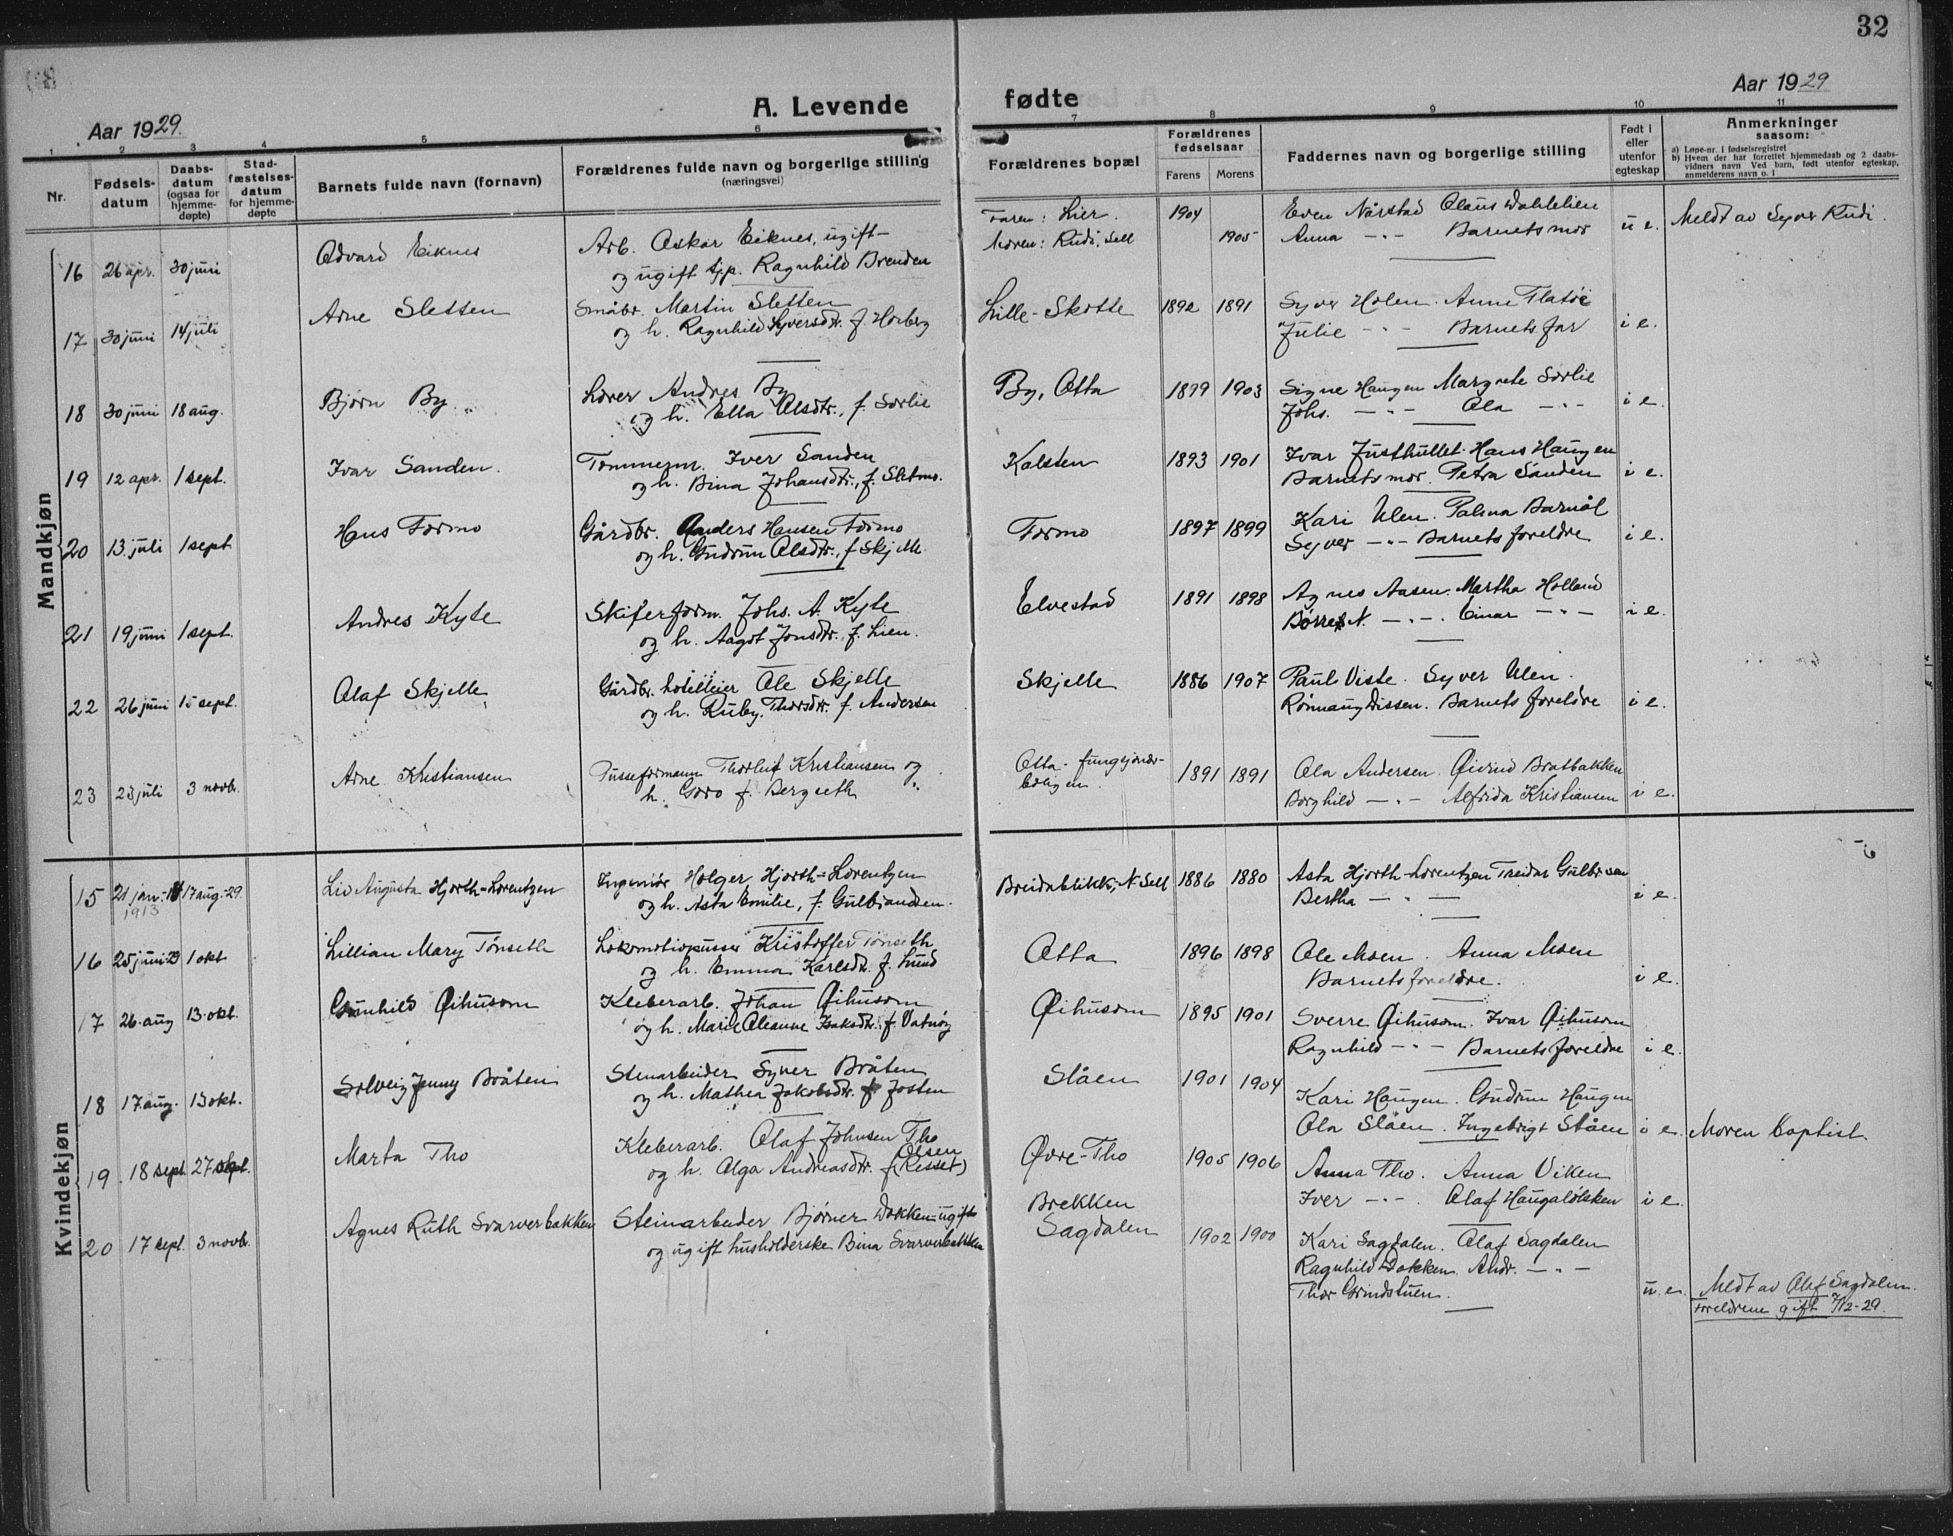 32
Aar 1929.
A. Levende fødte
Aar 1929
1 2 3 4 5 6 7 8 9 10 11
Nr.
Fødselsdatum
Daabsdatum (ogsaa for hjemmedøpte)
Stadfæstelsesdatum for hjemmedøpte
Barnets fulde navn (fornavn)
Forældrenes fulde navn og borgerlige stilling
(næringsvei)
Forældrenes bopæl
Forældrenes fødselsaar
Farens Morens
Faddernes navn og borgerlige stilling
Født i eller utenfor egteskap
Anmerkninger
saasom:
a) Løpe-nr. i fødselsregistret
b) Hvem der har forrettet hjemmedaab og 2 daabsvidners navn Ved barn, født utenfor egteskap, anmelderens navn o. l
Mandkjøn
16 26 apr. 30 juni Edvard Eiknes Arb. Oskar Eiknes, ugift Faren: Lier. 1904 Even Nårstad Olaus Dahlelien u e. Meldt av Syver Rudi.
og ugift tjp. Ragnhild Brenden Moren: Rudi, Sell 1905 Anna -"- Barnets mor
17 30 juni 14 juli Arne Sletten Småbr. Martin Sletten Lille-Skotte 1892 1891 Syver Holen. Anne Flatøe
og h. Ragnhild Syversdtr. f. Horberg Julie -"- Barnets far i e.
18 30 juni 18 aug. Bjørn By Lærer Andres By By, Otta 1899 1903 Signe Haugen Margrete Sørlie
og h. Ella Olsdtr., f. Sørlie Johs. -"- Ola -"- i e.
19 12 apr. 1 sept. Ivar Sanden. Tømmerm. Iver Sanden Kolsten 1893 1901 Ivar Justhullet. Hans Haugen
og h. Bina Johansdtr., f. Sletmo. Barnets mor. Petra Sanden i e.
20 13 juli 1 sept. Hans Formo Gårdbr. Anders Hansen Formo Formo 1897 1899 Kari Ulen. Palma Barnål
og h. Gudrun Olsdtr., f. Skjelle. Syver -"- Barnets foreldre i e.
21 19 juni 1 sept. Andres Kyte Skiferform. Johs. A. Kyte Elvestad 1891 1898 Agnes Aasen. Martha Holland
og h. Aagot Jonsdtr., f. Lien. Børre N. -"- Einar -"- i e.
22 26 juni 15 sept. Olaf Skjelle Gårdbr. hotelleier Ole Skjelle Skjelle 1886 1907 Paul Viste. Syver Ulen.
og h. Ruby Thorsdtr. f. Andersen Rønnaug Dissen. Barnets foreldre i e.
23 23 juli 3 novb. Arne Kristiansen Pusseformann Thorleif Kristiansen og Otta- fungsjonær- 1891 1891 Ola Andersen. Øivind Bratbakken
h. Goro f. Bergseth boligen. Borghild -"- Alfrida Kristiansen i e.
Kvindekjøn
15 21 jan. 1913 17 aug-29. Liv Augusta Hjorth-Lorentzen Ingeniør Holger Hjorth-Lorentzen Breidablikk, N. Sell 1886 1880 Asta Hjorth-Lorentzen
og h. Asta Emilie, f. Gulbrandsen. Bertha -"- i e.
16 25 juni 29 1 okt Lillian Mary Tønseth Lokomotivpusser Kristoffer Tønseth Otta 1896 1898 Ole Moen. Anna Moen
og h. Emma Karlsdtr. f. Lund Barnets foreldre. i e.
17 26. aug 13. okt. Gunhild Øihusom Kleberarb. Johan Øihusom Øihusom 1895 1901 Sverre Øihusom. Ivar Øihusom
og h. Marie Olesine Isaksdtr. f. Vatnøy Ragnhild -"- Barnets foreldre i e.
18 17 aug. 13 okt. Solveig Jenny Bråten Stenarbeider Syver Bråten Slåen 1901 1904 Kari Haugen. Gudrun Haugen
og h. Mathea Jakobsdtr. f Josten Ola Slåen. Ingebrigt Slåen i e. Moren baptist.
19 18 sept. 27 okt. Marta Tho Kleberarb. Olaf Johnsen Tho Øvre-Tho 1905 1906 Anna Tho. Anna Viken
og h. Olga Andreasdtr. f. Olsen (Resset) Iver -"- Olaf Haugaløkken i e.
20 17 sept. 3 novb. Agnes Ruth Svarverbakken Steinarbeider Bjørner Dokken ugift Brekken 1902 1900 Kari Sagdalen. Olaf Sagdalen
og ugift husholderske Bina Svarverbakken Sagdalen Ragnhild Dokken. Andr. -"-
Thor Grindstuen. u. e. Meldt av Olaf Sagdalen.
Foreldrene gift 7/12-29.